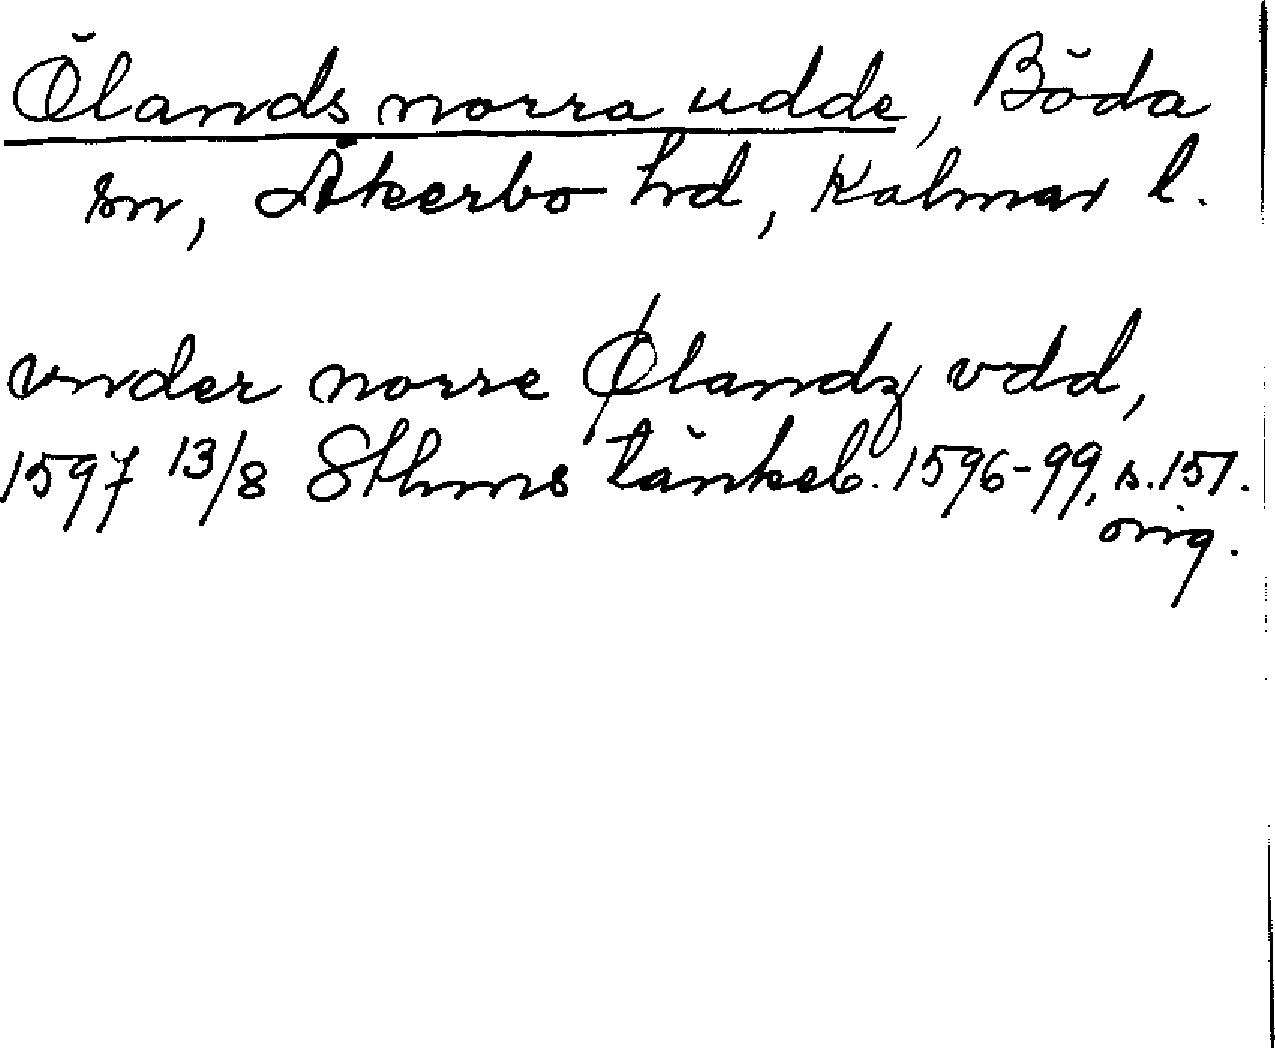 Ölands norra udde, Böda
sn, Åkerbo hd, Kalmar l.
vnder norre Ølandz vdd,
1597 13/8 Sthms tänkeb. 1596-99, s. 151.
orig.